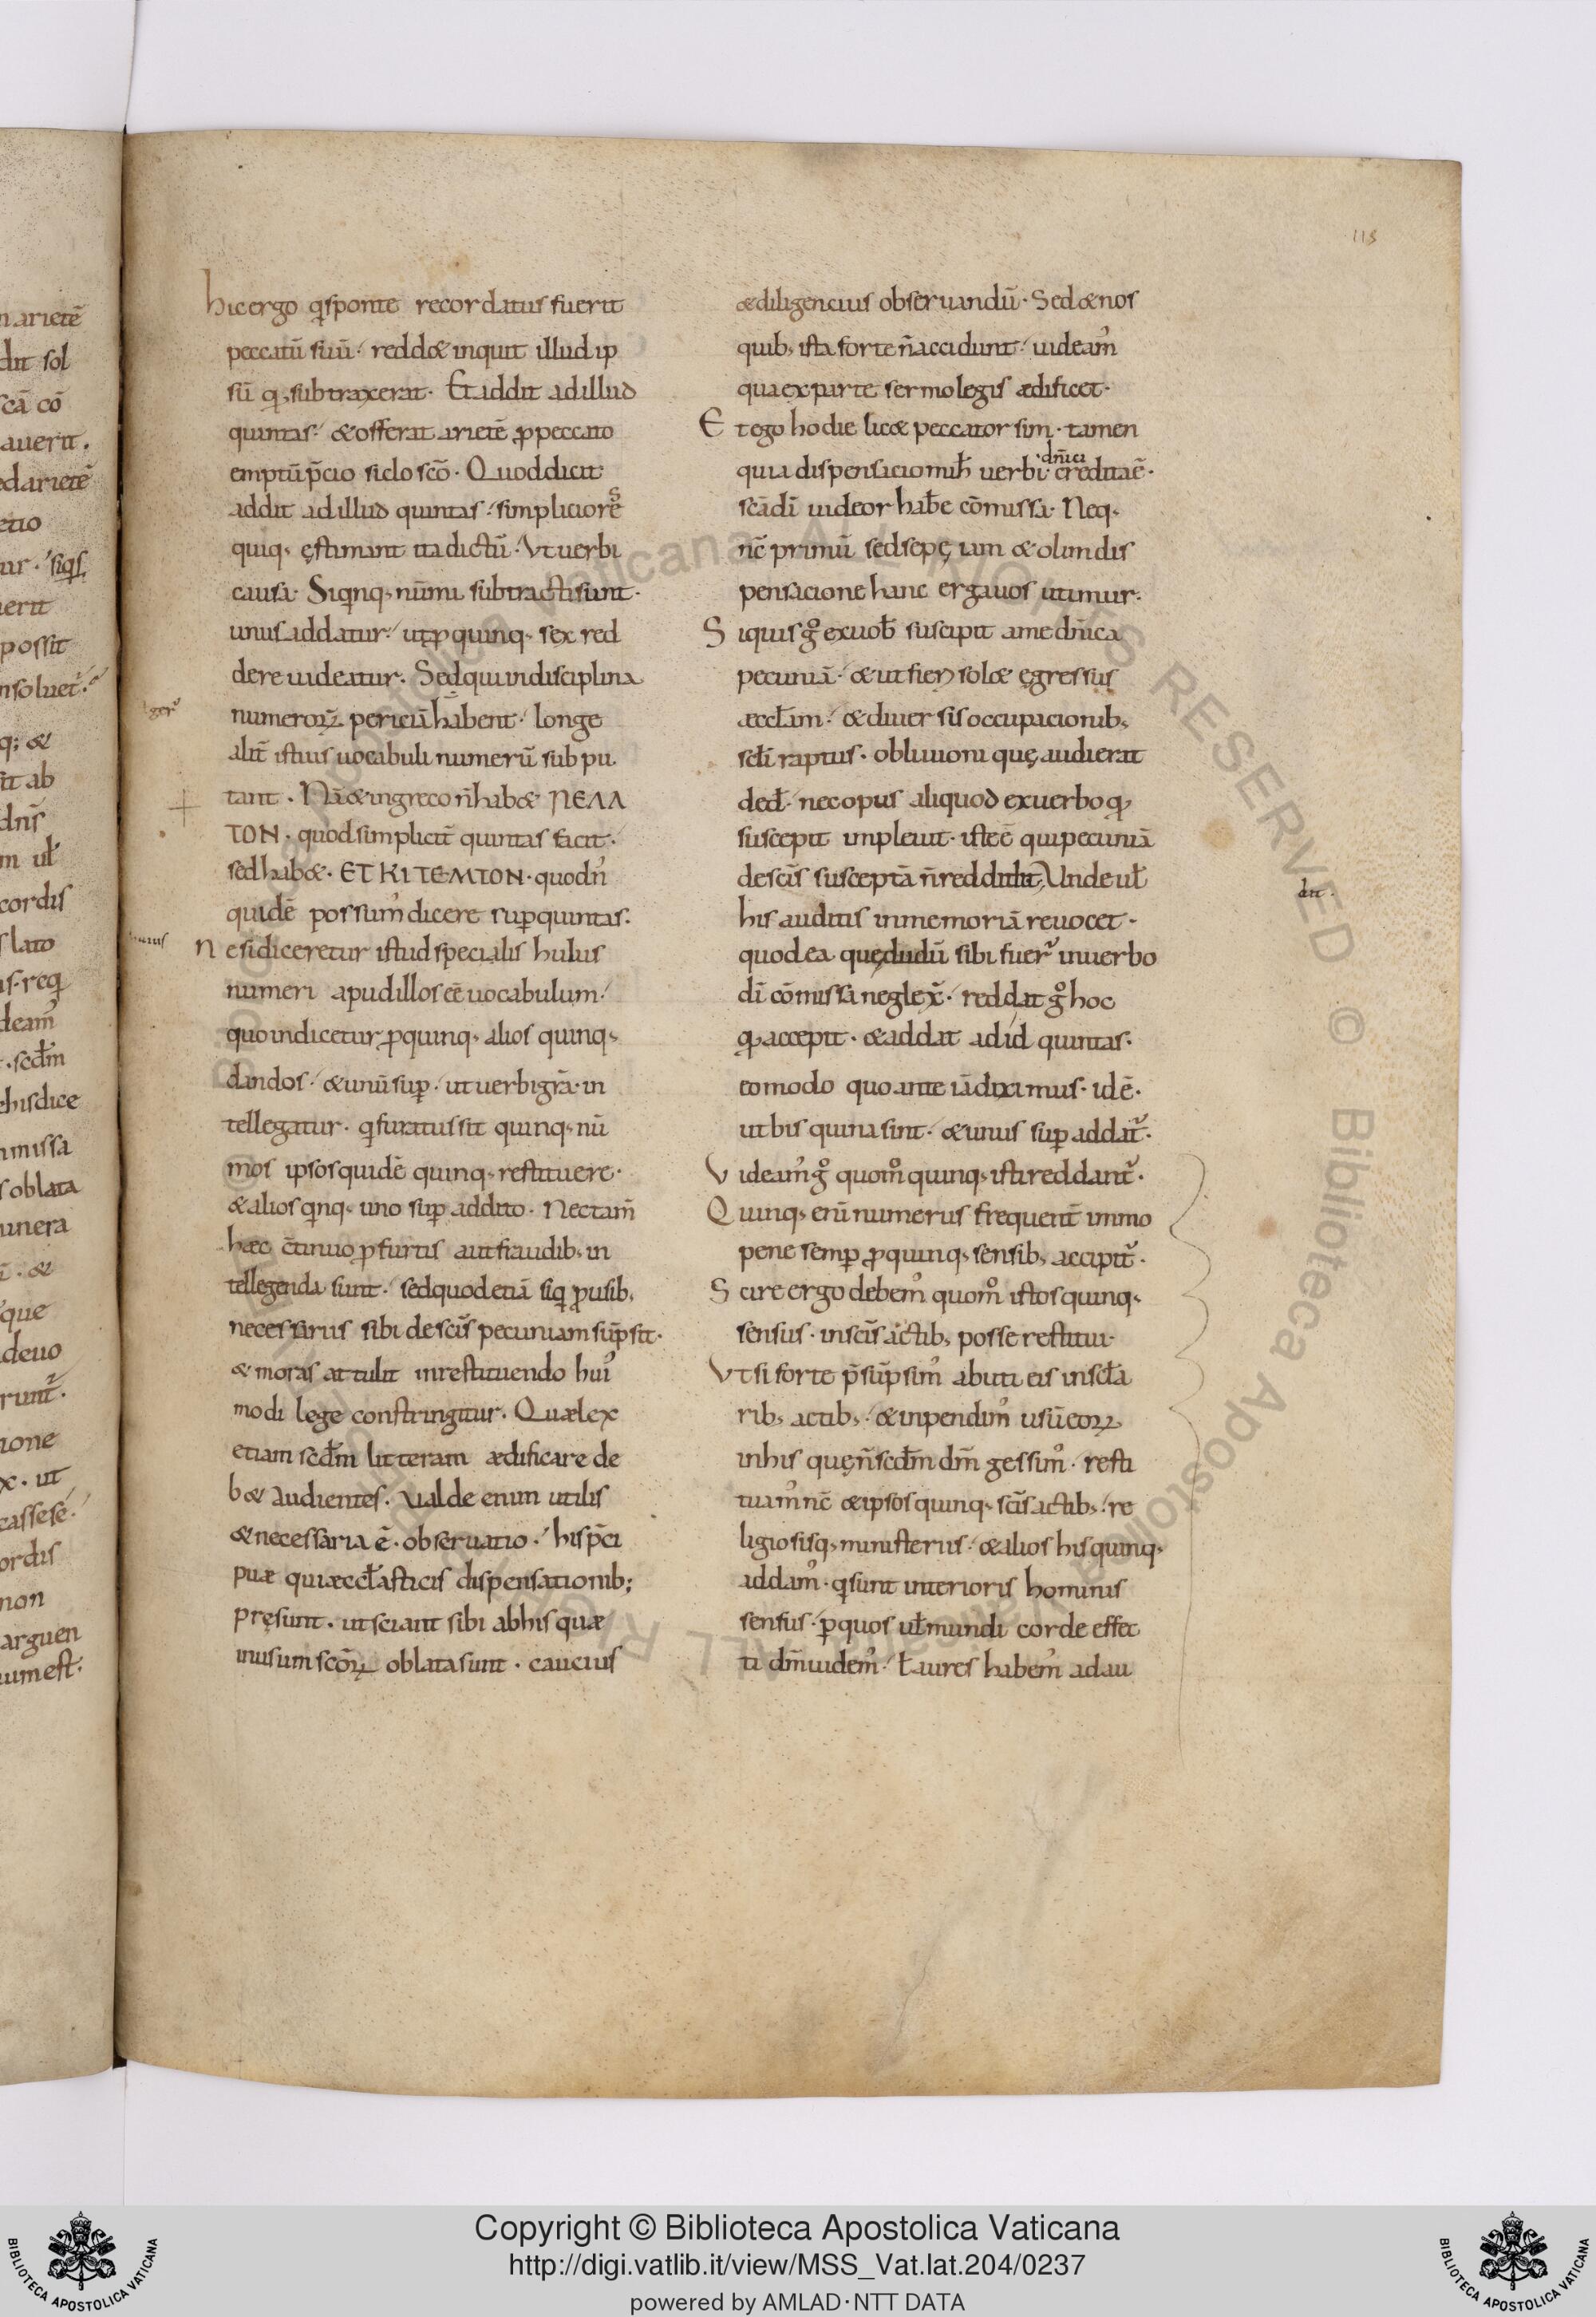 113
hic ergo qi sponte recordatus fuerit
peccatū suū· redd& inquit illud ip
sū qđ subtraxerat· Et addit ad illud
quintas· & offerat arietē p peccato
emptū p̄cio siclo sc̄o· Quod dicit
addit ad illud quintas· simpliciorēs
quiq· ęstimant ita dictū· Vt uerbi
causa· Si qinq· nūmi subtracti sunt·
unus addatur· ut p quinq· sex red
dere uideatur· Sed qui in disciplina
numeroꝝ periciā habent· longe
alit̄ istius uocabuli numerū subpu
tant· Nā & in greco n̄ hab& ΠΕΛΛ
ΤΟΝ· quod simplicit̄ quintas facit·
sed hab&· ΕΤ ΚΙ ΤΕΜΤΟΝ· quod n᷒
quidē possum᷒ dicere sup quintas·
Nesi diceretur istud specialis huius
numeri apud illos eē uocabulum·
quo indicetur p quinq· alios quinq·
dandos· & unū sup· ut uerbi gr̄a· in
tellegatur· qi furatus sit quinq· nū
mos ipsos quidē quinq· restituere·
& alios qinq· uno sup addito· Nec tam̄
hæc c̄tinuo p furtis aut fraudib· in
tellegenda sunt· sed quod etiā siq p usib·
necessariis sibi de sc̄is pecuniam sūpsit·
& moras attulit in restituendo hui᷒
modi lege constringitur· Quæ lex
etiam scd̄m litteram ædificare de
b& audientes· Valde enim utilis
& necessaria ē· obseruatio· his p̄ci
puæ qui æccl̄asticis dispensationib;
pręsunt· ut sciant sibi ab his quæ
in usum sc̄oꝝ oblata sunt· caucius
& diligencius obseruandū· Sed & nos
quib· ista forte n̄ accidunt· uideam᷒
qua ex parte sermo legis ædificet·
Et ego hodie lic& peccator sim· tamen
dn̄ici
quia dispensacio mih̄ uerbi credita ē·
sc̄a dī uideor hab̄e cōmissa· Neq·
nc̄ primū sed sepę iam & olim dis
pensacione hanc erga uos utimur·
Siquis g° ex uob̄ suscipit a me dn̄ica
pecuniā· & ut fieri sol& ęgressus
æccl̄am· & diuersis occupacionib·
sc̄li raptus· obliuioni quę audierat
ded̄· nec opus aliquod ex uerbo qđ
suscepit impleuit· iste ē qui pecuniā
de sc̄is susceptā n̄ reddidit· Unde ul̄
dit·
his auditis in memoriā reuocet·
quod ea quędudū sibi fuer̄ in uerbo
dī cōmissa neglex̄· reddat g° hoc
qđ accepit· & addat ad id quintas·
eo modo quo ante iā diximus· idē·
ut bis quina sint· & unus sup addat̄·
Videam᷒ g° quom° quinq· isti reddant̄·
Quinq· enī numerus frequent̄ immo
pene semp p quinq· sensib· accipit̄·
Scire ergo debem᷒ quom° istos quinq·
sensus· in sc̄is actib· posse restitui·
Vt si forte p̄sūpsim᷒ abuti eis in sc̄la
rib· actib· & inpendim᷒ usū eoꝝ
in his quę n̄ scd̄m dm̄ gessim᷒· resti
tuam᷒ nc̄ & ipsos quinq· sc̄is actib· re
ligiosisq· ministeriis· & alios his quinq·
addam᷒· qi sunt interioris hominis
sensus· p quos ul̄ mundi corde effec
ti dm̄ uidem᷒· ł aures habem᷒ ad au
Copyright © Biblioteca Apostolica Vaticana
http://digi.vatlib.it/view/MSS_Vat.lat.204/0237
powered by AMLAD·NTT DATA
BIBLIOTECA APOSTOLICA VATICANA
BIBLIOTECA APOSTOLICA VATICANA